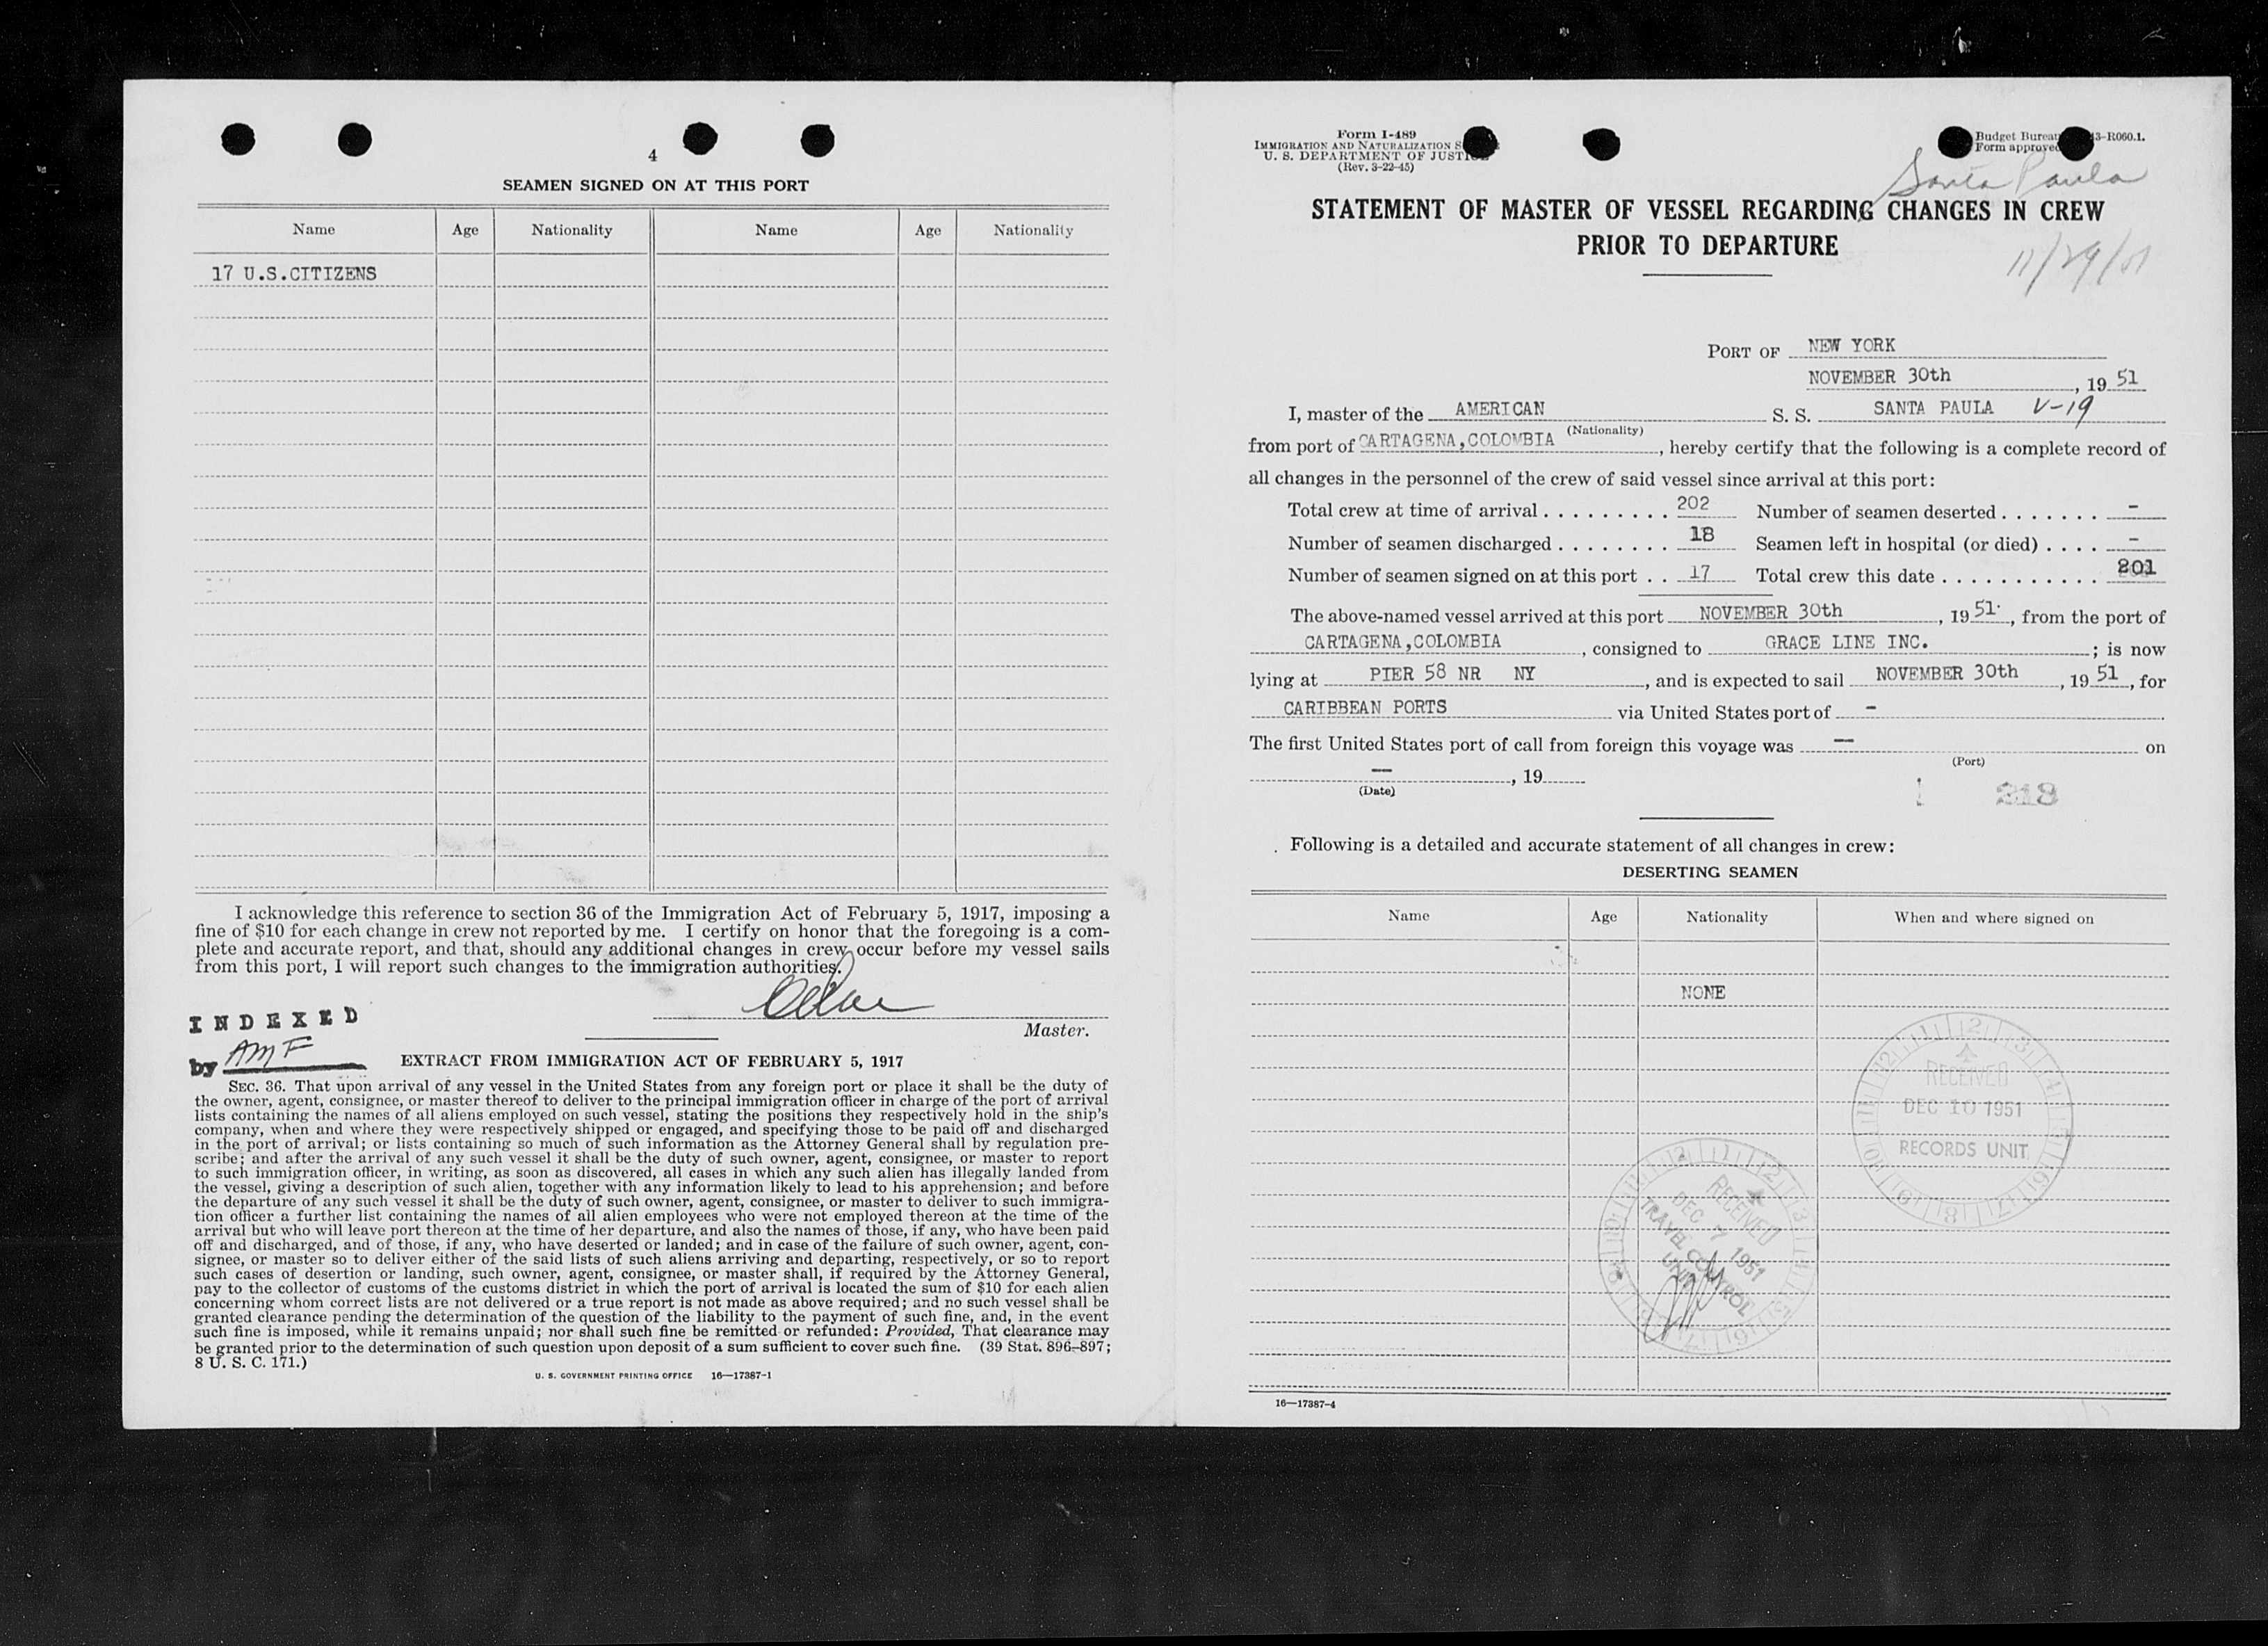 4
SEAMEN SIGNED ON AT THIS PORT
Name Age Nationality Name Age Nationality
17 U.S.CITIZENS
I acknowledge this reference to section 36 of the Immigration Act of February 5, 1917, imposing a
fine of $10 for each change in crew not reported by me. I certify on honor that the foregoing is a com-
plete and accurate report, and that, should any additional changes in crew occur before my vessel sails
from this port, I will report such changes to the immigration authorities.
Master.
INDEXED
by AMF
EXTRACT FROM IMMIGRATION ACT OF FEBRUARY 5, 1917
SEC. 36. That upon arrival of any vessel in the United States from any foreign port or place it shall be the duty of
the owner, agent, consignee, or master thereof to deliver to the principal immigration officer in charge of the port of arrival
lists containing the names of all aliens employed on such vessel, stating the positions they respectively hold in the ship's
company, when and where they were respectively shipped or engaged, and specifying those to be paid off and discharged
in the port of arrival; or lists containing so much of such information as the Attorney General shall by regulation pre-
scribe; and after the arrival of any such vessel it shall be the duty of such owner, agent, consignee, or master to report
to such immigration officer, in writing, as soon as discovered, all cases in which any such alien has illegally landed from
the vessel, giving a description of such alien, together with any information likely to lead to his apprehension; and before
the departure of any such vessel it shall be the duty of such owner, agent, consignee, or master to deliver to such immigra-
tion officer a further list containing the names of all alien employees who were not employed thereon at the time of the
arrival but who will leave port thereon at the time of her departure, and also the names of those, if any, who have been paid
off and discharged, and of those, if any, who have deserted or landed; and in case of the failure of such owner, agent, con-
signee, or master so to deliver either of the said lists of such aliens arriving and departing, respectively, or so to report
such cases of desertion or landing, such owner, agent, consignee, or master shall, if required by the Attorney General,
pay to the collector of customs of the customs district in which the port of arrival is located the sum of $10 for each alien
concerning whom correct lists are not delivered or a true report is not made as above required; and no such vessel shall be
granted clearance pending the determination of the question of the liability to the payment of such fine, and, in the event
such fine is imposed, while it remains unpaid; nor shall such fine be remitted or refunded: Provided, That clearance may
be granted prior to the determination of such question upon deposit of a sum sufficient to cover such fine. (39 Stat. 896–897;
8 U. S. C. 171.)
U. S. GOVERNMENT PRINTING OFFICE 16—17387-1
Form I-489
IMMIGRATION AND NATURALIZATION
U. S. DEPARTMENT OF JUSTICE
(Rev. 3-22-45)
Budget Bureau 3-R060.1.
Form approved
Santa Paula
STATEMENT OF MASTER OF VESSEL REGARDING CHANGES IN CREW
PRIOR TO DEPARTURE
11/29/51
PORT OF NEW YORK
NOVEMBER 30th, 19 51
I, master of the AMERICAN S. S. SANTA PAULA V-19
(Nationality)
from port of CARTAGENA,COLOMBIA, hereby certify that the following is a complete record of
all changes in the personnel of the crew of said vessel since arrival at this port:
Total crew at time of arrival . . . . . . . . . 202 Number of seamen deserted . . . . . . . -
Number of seamen discharged . . . . . . . . 18 Seamen left in hospital (or died) . . . . -
Number of seamen signed on at this port . . 17 Total crew this date . . . . . . . . . . . 201
The above-named vessel arrived at this port NOVEMBER 30th, 19 51, from the port of
CARTAGENA,COLOMBIA, consigned to GRACE LINE INC.; is now
lying at PIER 58 NR NY, and is expected to sail NOVEMBER 30th, 19 51, for
CARIBBEAN PORTS via United States port of -
The first United States port of call from foreign this voyage was — on
(Port)
—, 19
(Date)
218
Following is a detailed and accurate statement of all changes in crew:
DESERTING SEAMEN
Name Age Nationality When and where signed on
NONE
RECEIVED
DEC 10 1951
RECORDS UNIT
RECEIVED
DEC 7 1951
TRAVEL CONTROL
UNIT
16—17387-4